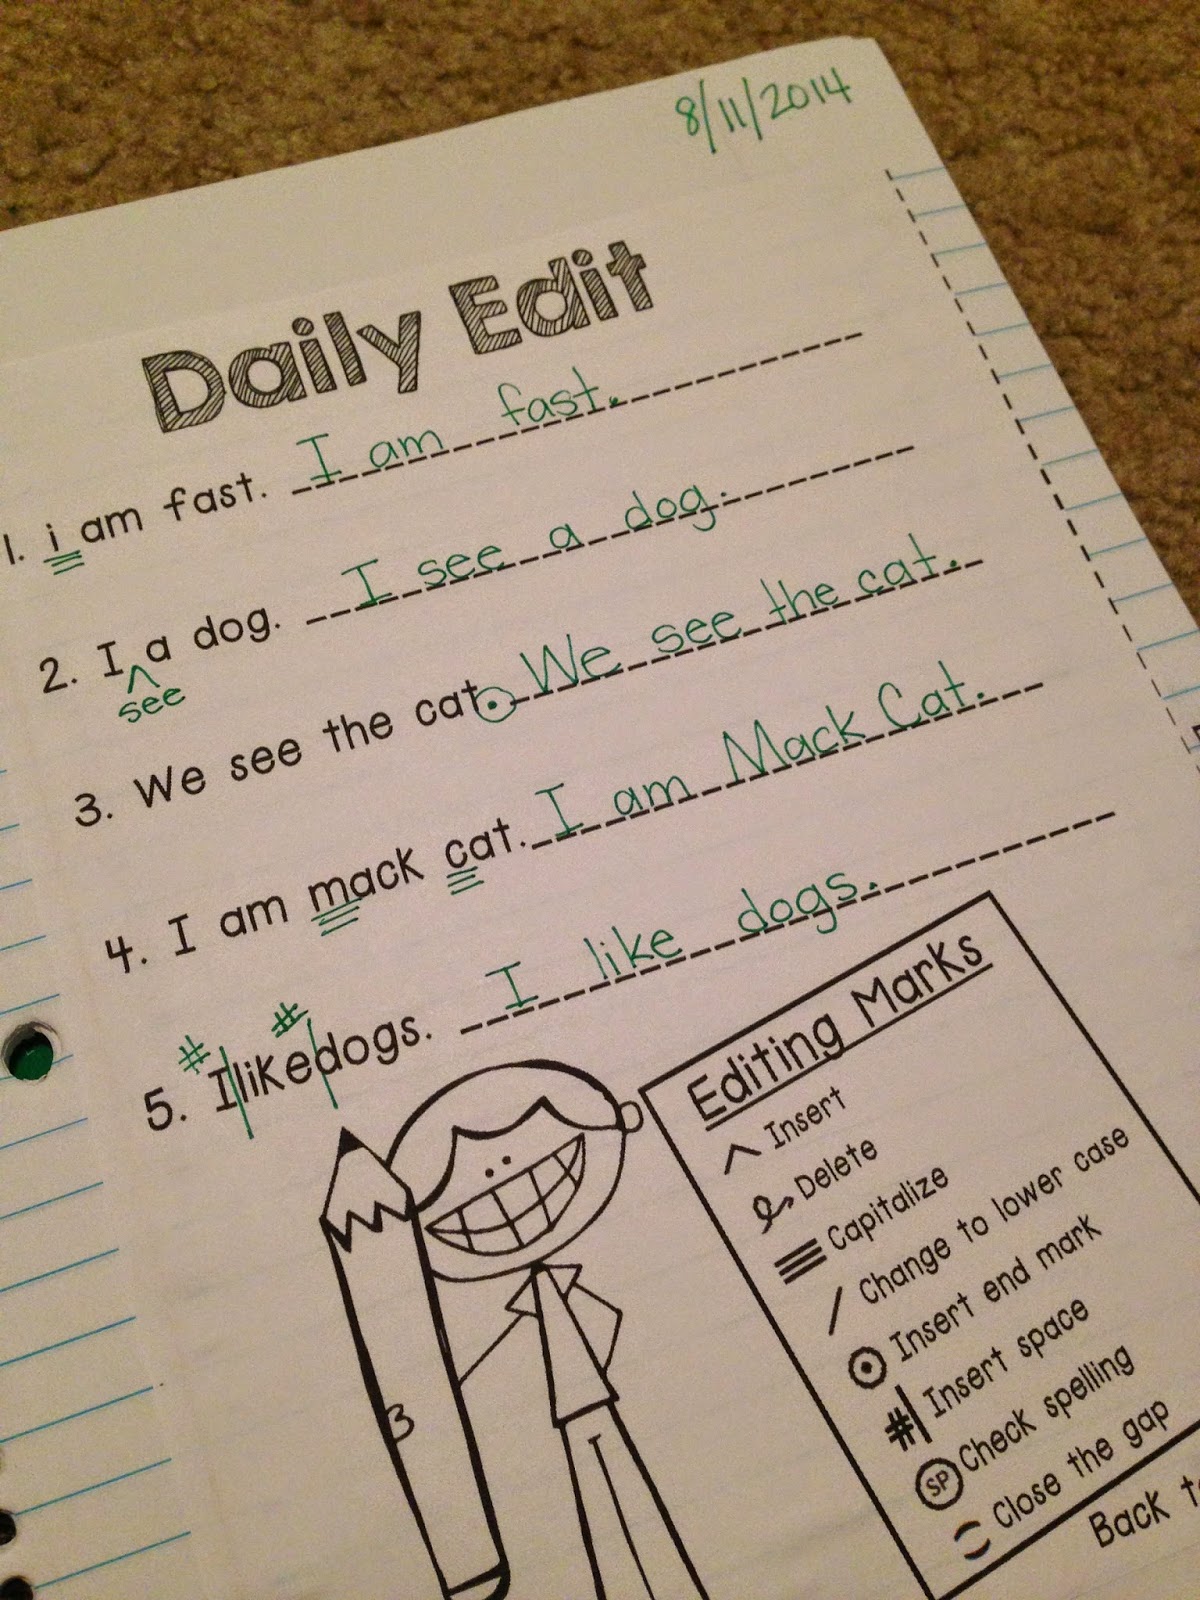 8/11/2014
Daily Edit
1. i am fast. I am fast.
2. I a dog. I see a dog.
see
3. We see the cat. We see the cat.
4. I am mack cat. I am Mack Cat.
# #
5. Ilikedogs. I like dogs.
Editing Marks
Insert
Delete
Capitalize
Change to lower case
Insert end mark
# Insert space
SP Check spelling
Close the gap
Back